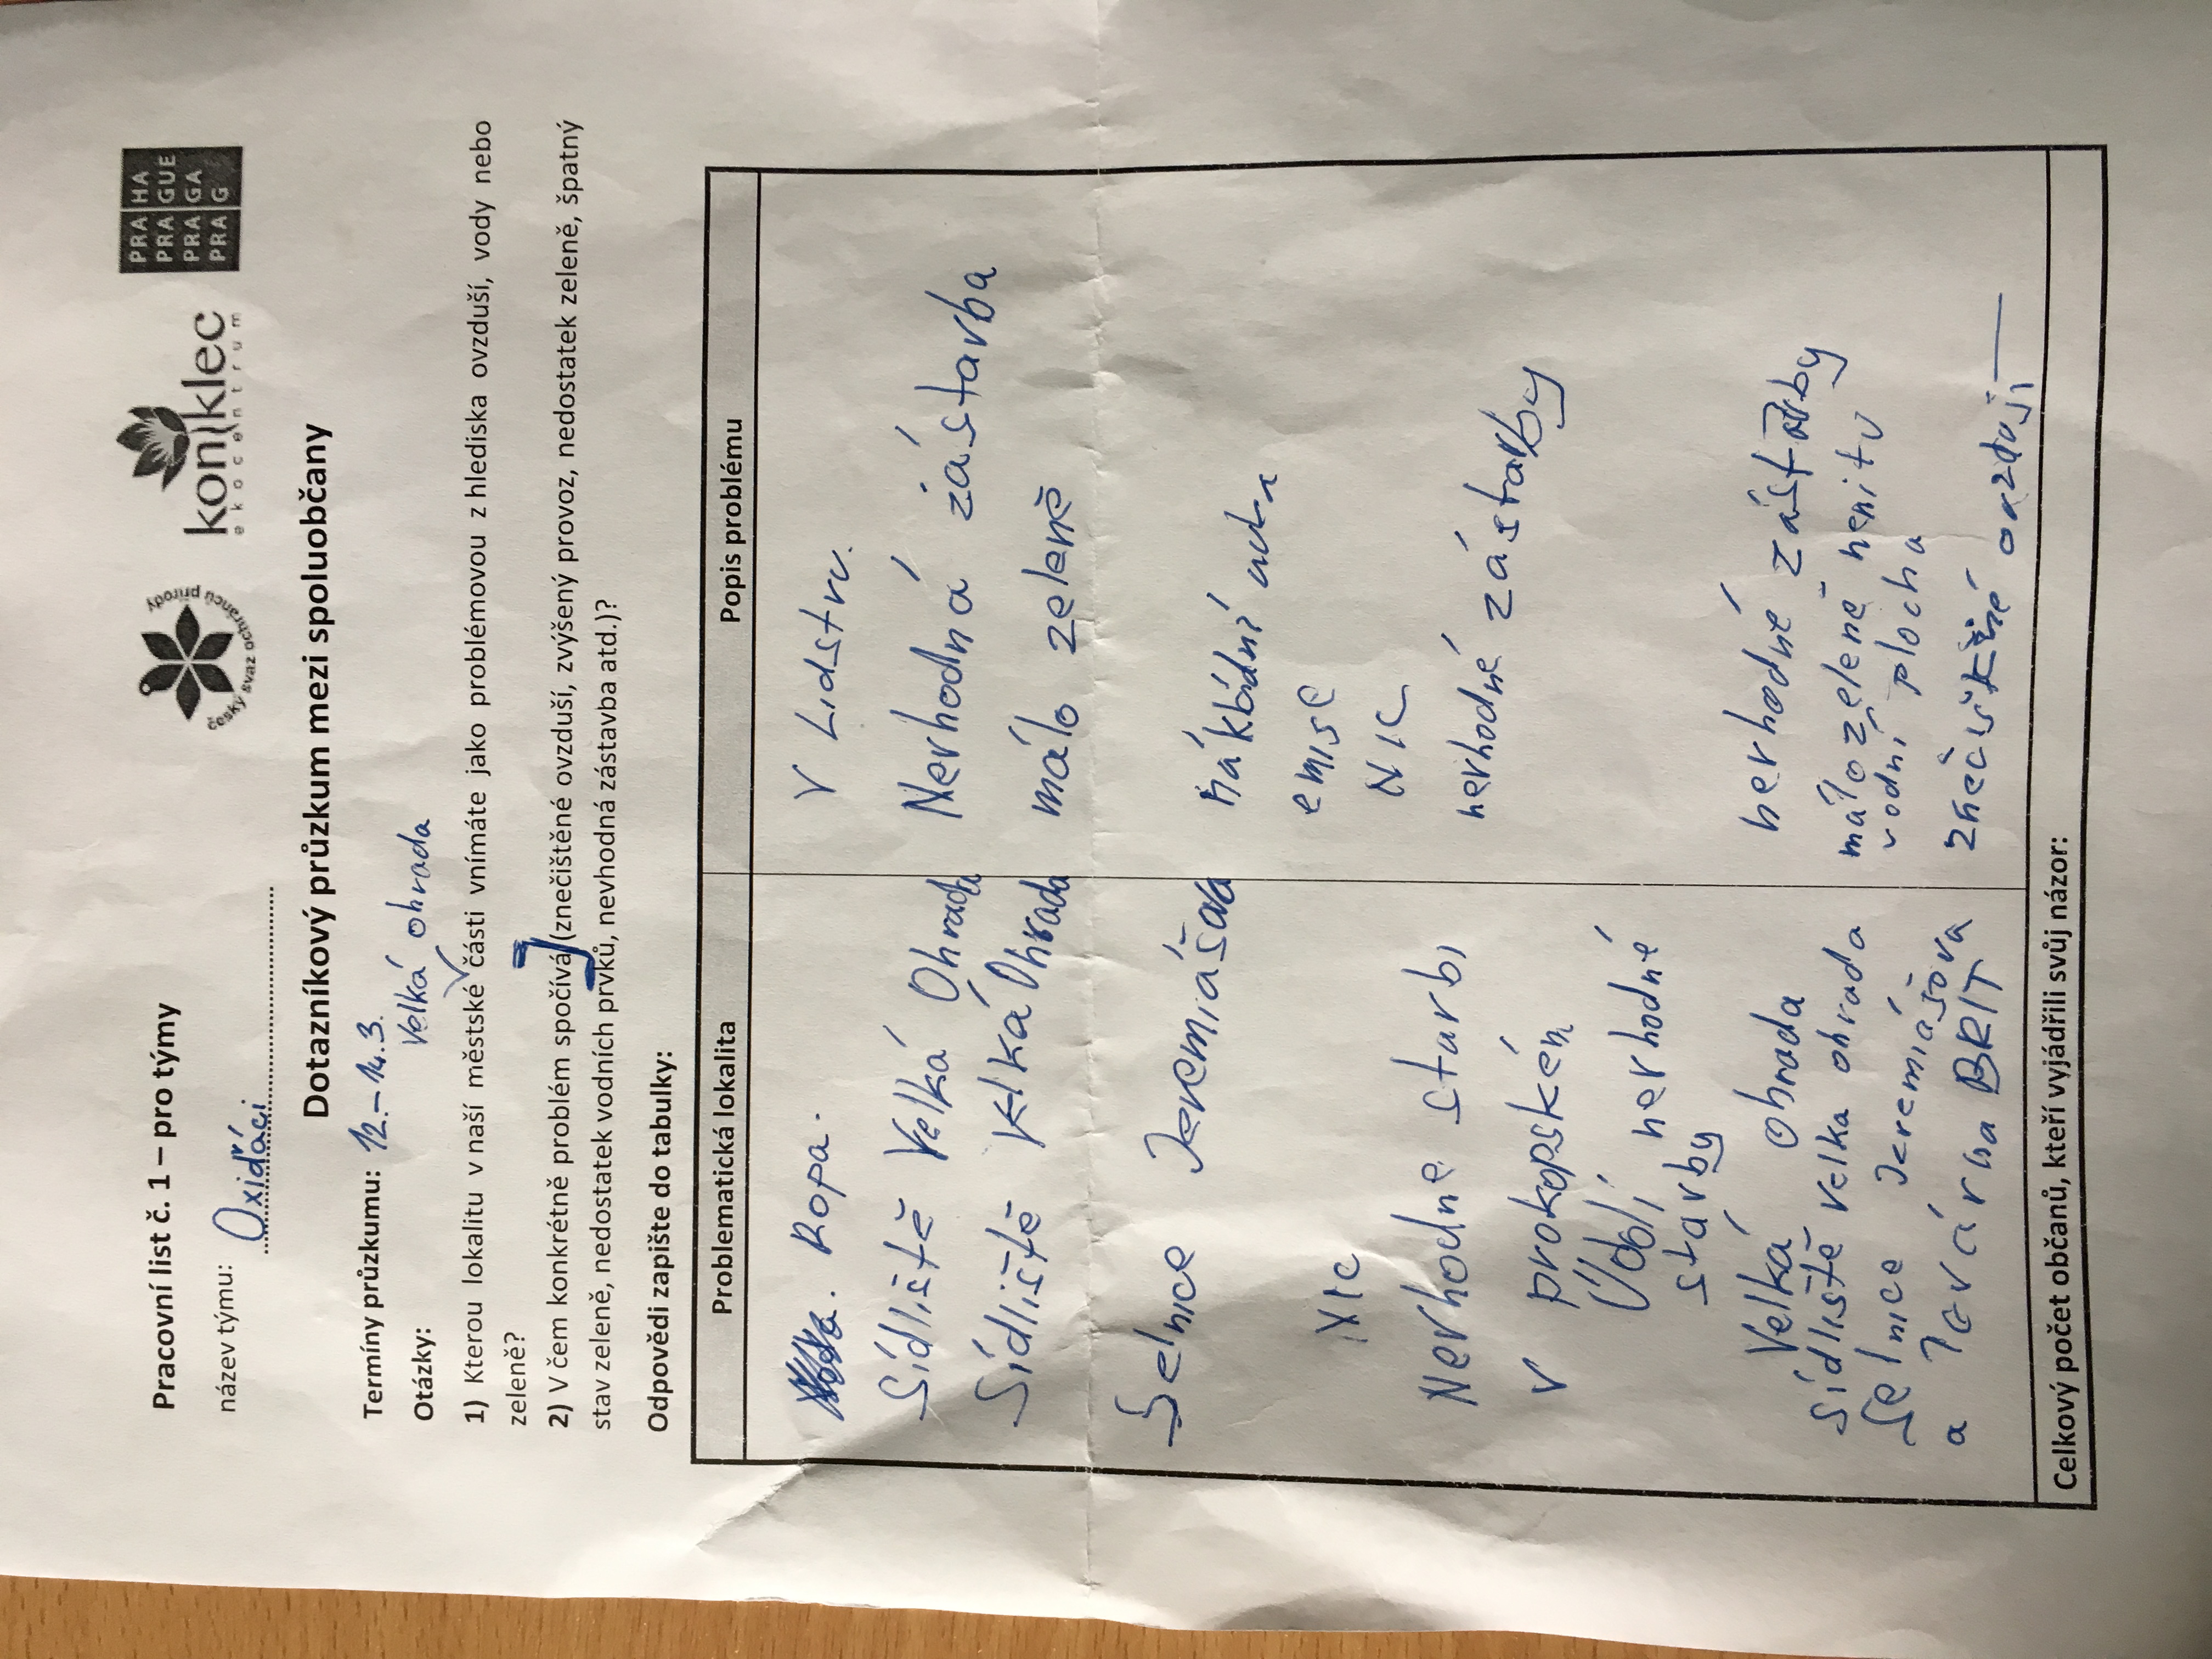 český svaz ochránců přírody
koniklec
ekocentrum
PRA HA
PRA GUE
PRA GA
PRA G
Pracovní list č. 1 – pro týmy
název týmu: Oxiďáci
Dotazníkový průzkum mezi spoluobčany
Termíny průzkumu: 12.-14.3.
Velká ohrada
Otázky:
1) Kterou lokalitu v naší městské části vnímáte jako problémovou z hlediska ovzduší, vody nebo
zeleně?
2) V čem konkrétně problém spočívá (znečištěné ovzduší, zvýšený provoz, nedostatek zeleně, špatný
stav zeleně, nedostatek vodních prvků, nevhodná zástavba atd.)?
Odpovědi zapište do tabulky:
Problematická lokalita Popis problému
Ropa. V Lidstvu.
Sídliště Velká Ohrada Nevhodná zástavba
Sídliště Velká Ohrada málo zeleně
Selnice Jeremiášova nákládní auta
emise
Nic NIC
Nevhodne starbi nevhodné zástavby
v prokopském
Údolí nevhodné
starby
Velká ohrada nevhodné zástavby
sídliště velka ohrada málo zeleně nenitu
Selnice Jeremiášova vodní plocha
a Továrna BRIT znečištěné ovzduší
Celkový počet občanů, kteří vyjádřili svůj názor: